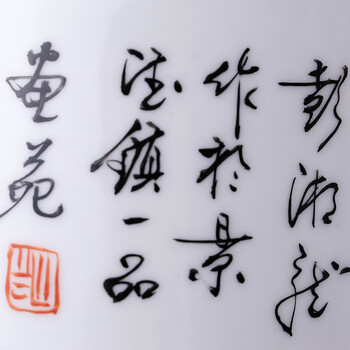 彭湘龙
作於景
德鎮一品
画苑